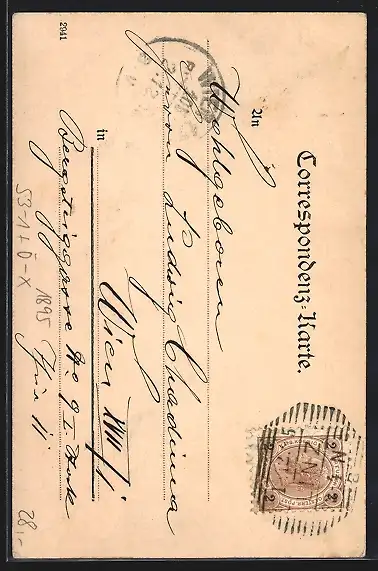 Correspondenz-Karte.
An
Wohlgeboren
Herrn Ludwig Chadima
in
Wien XVIII/1
Bergsteiggasse No 9 I Stock
Thür 11
2941
2
2
WIEN
53-1+Ö-X
1895
28,-